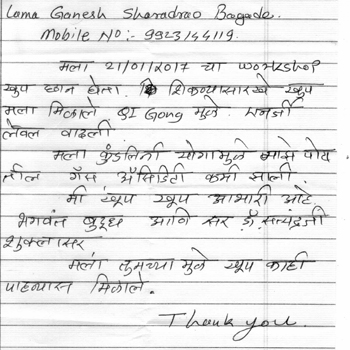 Lama Ganesh Sharadrao Bagade.
Mobile No :- 9923144119.
मला 21/01/2017 चा workshop
खुप छान होता. शिकण्यासारखे खुप
मला मिळाले QI Gong मुळे. एनर्जी
लेवल वाढली.
मला कुंडलिनी योगामुळे माझे पोट
तील गॅस ॲसिडिटी कमी झाली.
मी खूप खूप आभारी आहे
भगवंत बुद्ध आणि सर डॉ. सत्येंद्रजी
शुक्ला सर
मला तुमच्या मुळे खूप काही
पाहण्यास मिळाले.
Thank you.